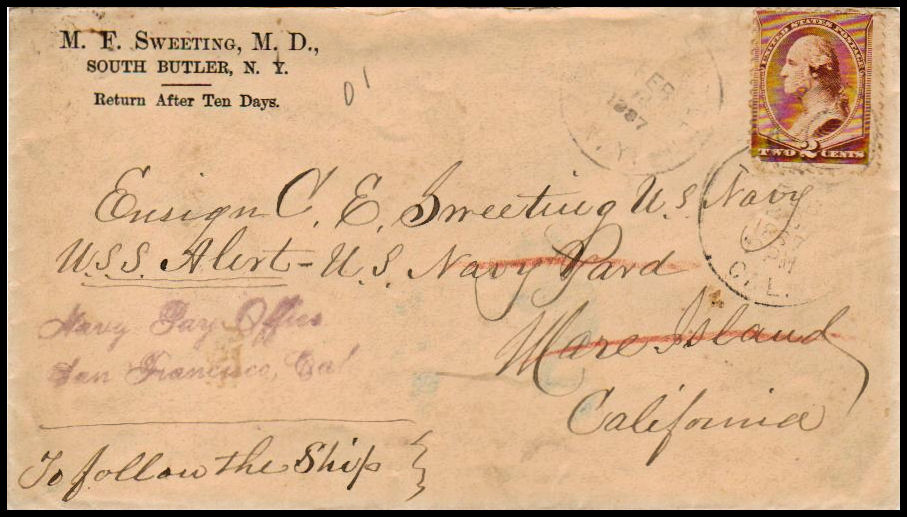 M. F. SWEETING, M. D.,
SOUTH BUTLER, N. Y.
Return After Ten Days.
D1
FEB
1887
N. Y.
UNITED STATES POSTAGE
TWO 2 CENTS
PM
CAL.
Ensign C. E. Sweeting U.S. Navy
U.S.S. Alert - U.S. Navy Yard
Mare Island
California
Navy Pay Office
San Francisco, Cal
To follow the Ship